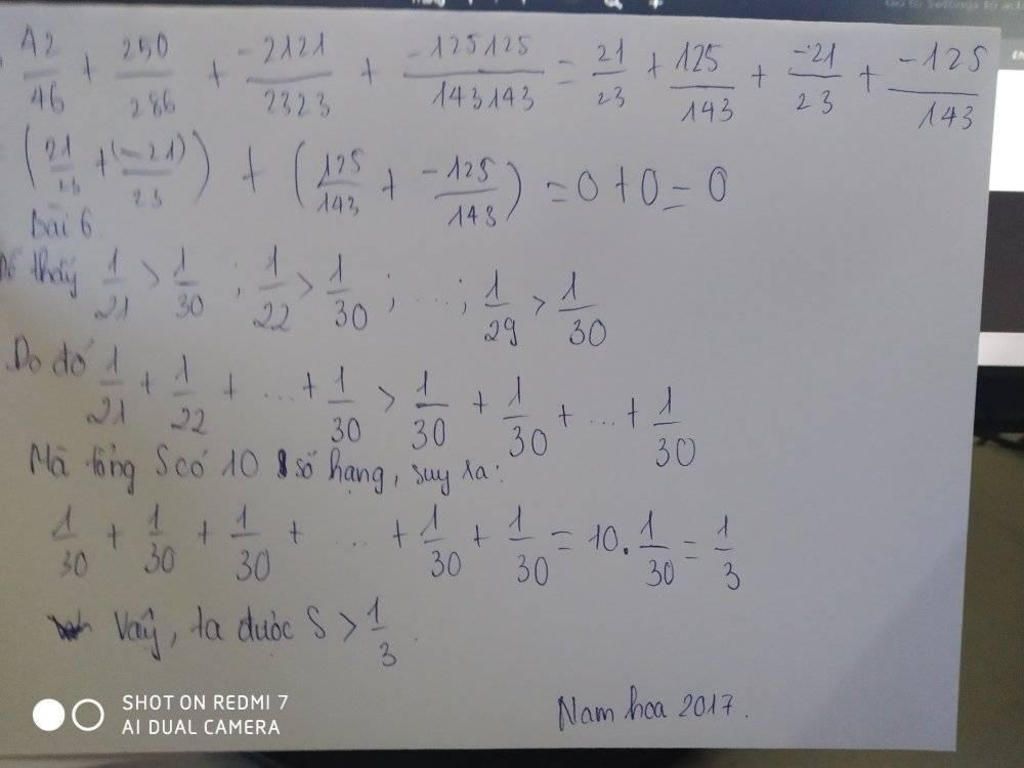 42/46 + 250/286 + -2121/2323 + -125125/143143 = 21/23 + 125/143 + -21/23 + -125/143
(21/23 + (-21)/23) + (125/143 + -125/143) = 0 + 0 = 0
Bài 6
thấy 1/21 > 1/30 ; 1/22 > 1/30 ; ... ; 1/29 > 1/30
Do đó 1/21 + 1/22 + ... + 1/30 > 1/30 + 1/30 + ... + 1/30
Mà tổng S có 10 số hạng, suy ra:
1/30 + 1/30 + 1/30 + ... + 1/30 + 1/30 = 10. 1/30 = 1/3
Vậy, ta được S > 1/3.
Nam hoa 2017.
SHOT ON REDMI 7
AI DUAL CAMERA